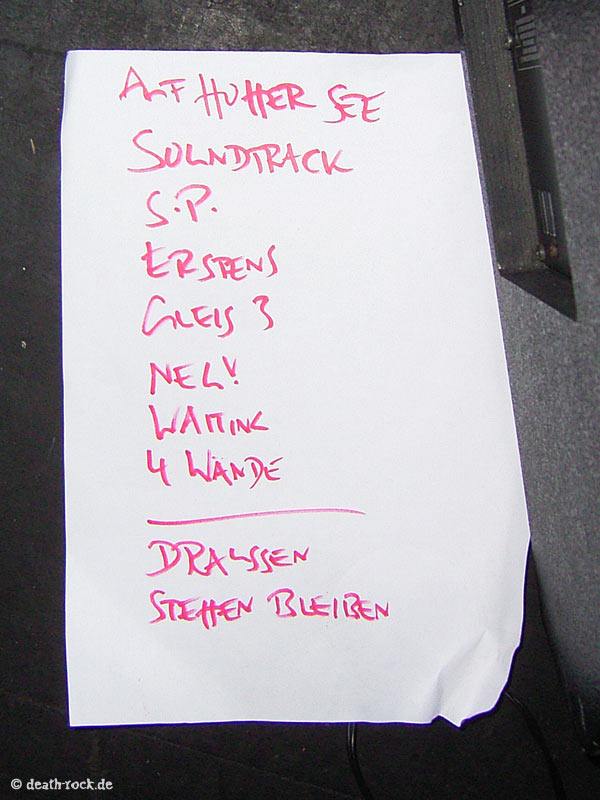 AUF HOHER SEE
SOUNDTRACK
S.P.
ERSTENS
GLEIS 3
NEU!
WAITING
4 WÄNDE
DRAUSSEN
STEHEN BLEIBEN
© death-rock.de